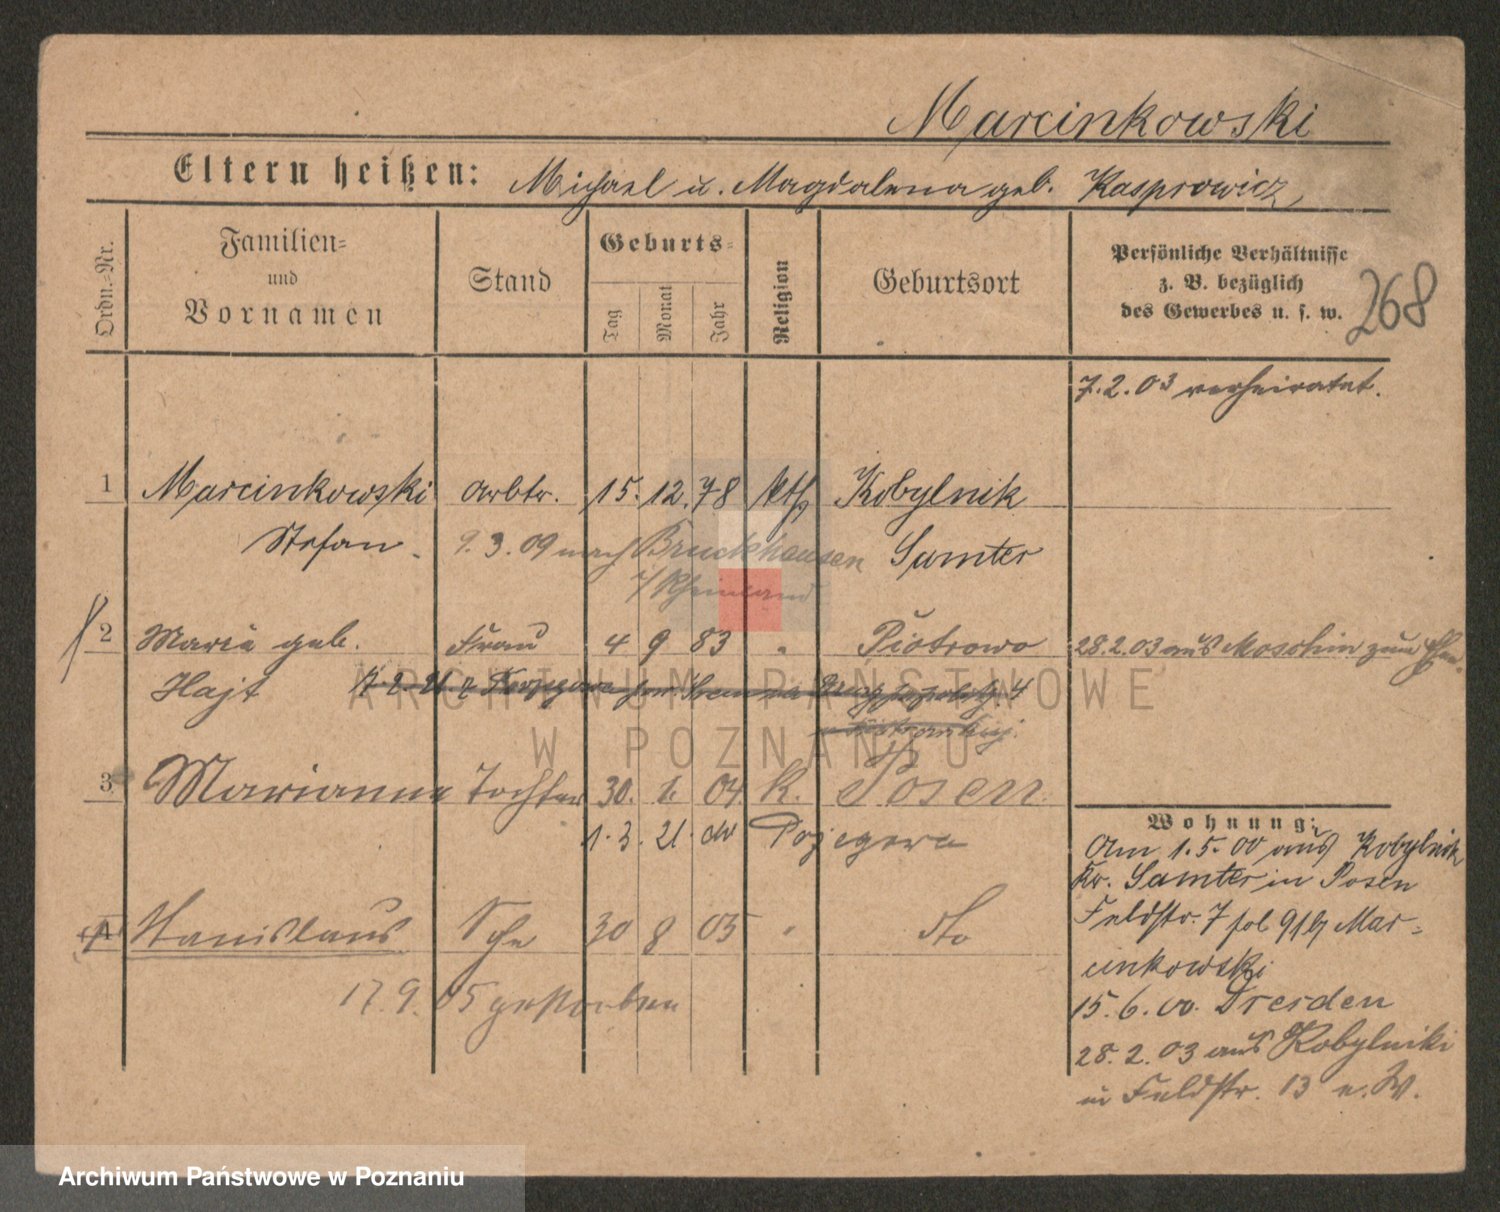 Marcinkowski
Eltern heißen: Michael u. Magdalena geb. Kasprowicz
Ordn.=Nr.
Familien=
und
Vornamen
Stand
Geburts=
Tag
Monat
Jahr
Religion
Geburtsort
Persönliche Verhältnisse
z. B. bezüglich
des Gewerbes u. s. w.
268
7.2.03 verheiratet.
1 Marcinkowski Arbtr. 15. 12. 78 kth Kobylnik
Stefan. 9.3.09 nach Bruckhausen Samter
Rheinland
2 Maria geb. Frau 4 9 83 " Piotrowo 28.2.03 aus Moschin zum
Hajt
3 Marianna Tochter 30. 1. 04 K. Posen
1. 3. 21.
Stanislaus 30 8 05 " dto
17.9.05 gestorben
Wohnung:
Am 1.5.00 aus Kobylnik
Kr. Samter in Posen
Feldstr. 7 Mar-
cinkowski
15.6.00. Dresden
28.2.03 aus Kobylniki
in Feldstr. 13
ARCHIWUM PAŃSTWOWE
W POZNANIU
Archiwum Państwowe w Poznaniu